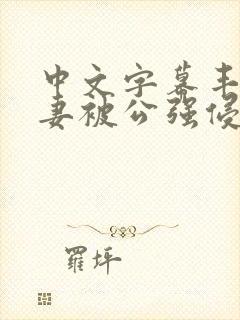 中文字幕丰
妻被公强侵
羅坪